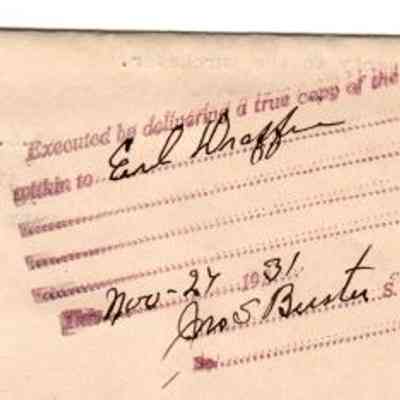 Executed by delivering a true copy of the
within to Earl Draffin
This Nov-27 1931
Jno S Buster S.
By